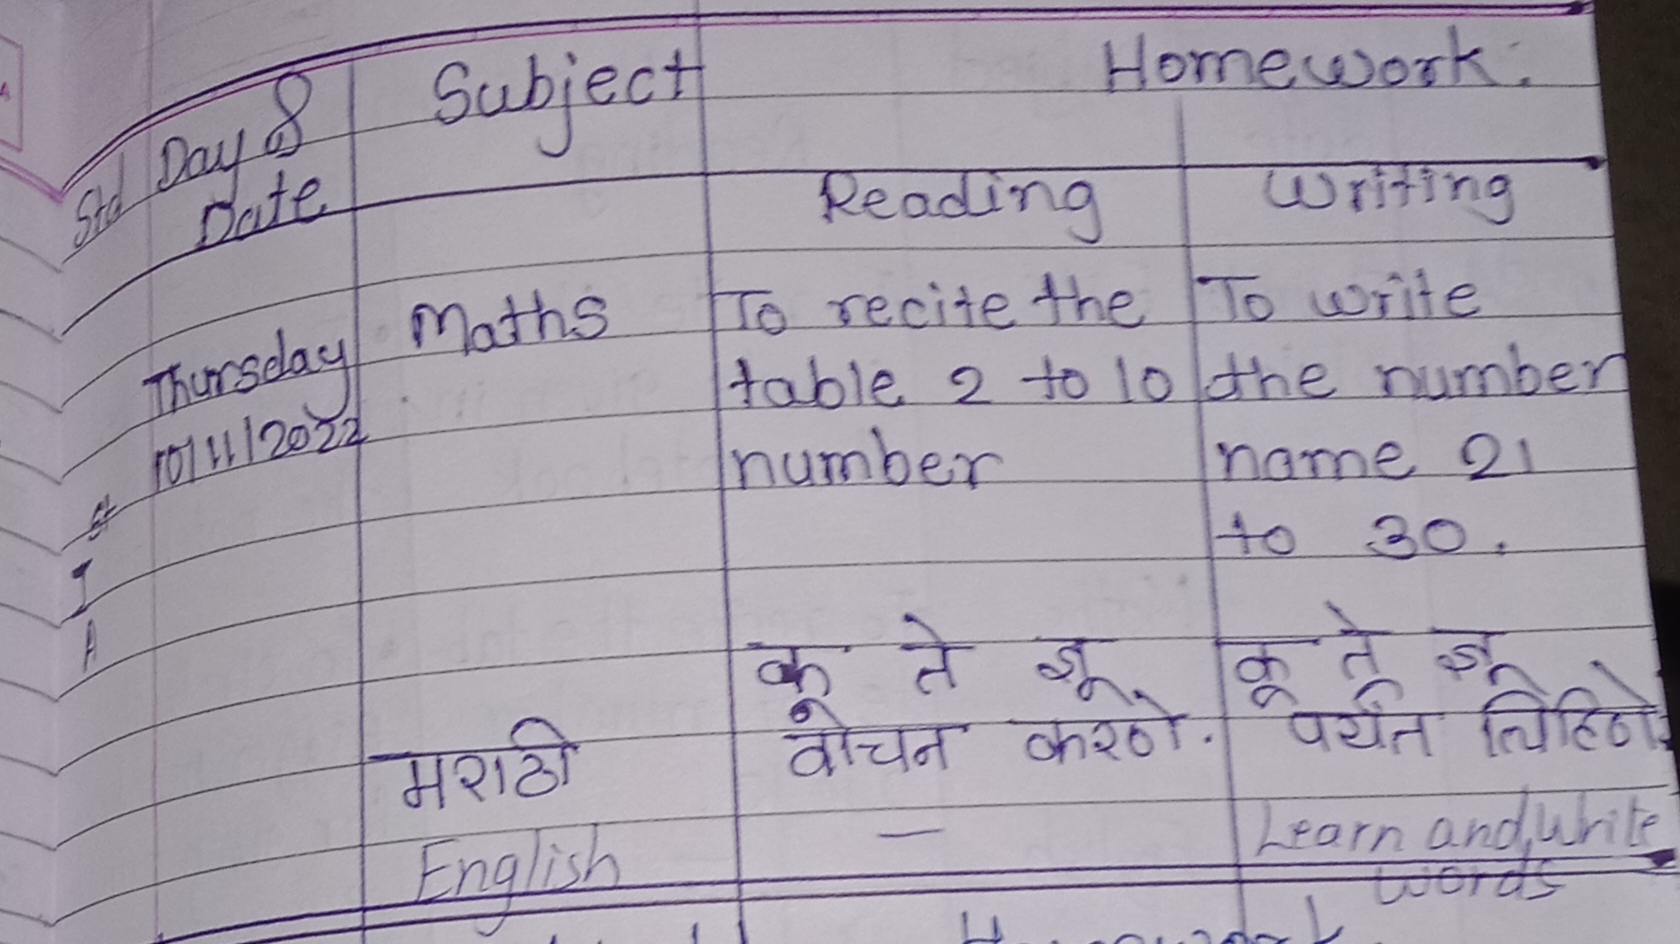 Std Day & Subject Homework.
Date Reading Writing
Thursday Maths To recite the To write
10/11/2022 table 2 to 10 the number
number name 21
to 30.
I
A
कू ते ज्ञू कू ते ज्ञू
मराठी वाचन करणे. पर्यंत लिहिणे.
English — Learn and write
words